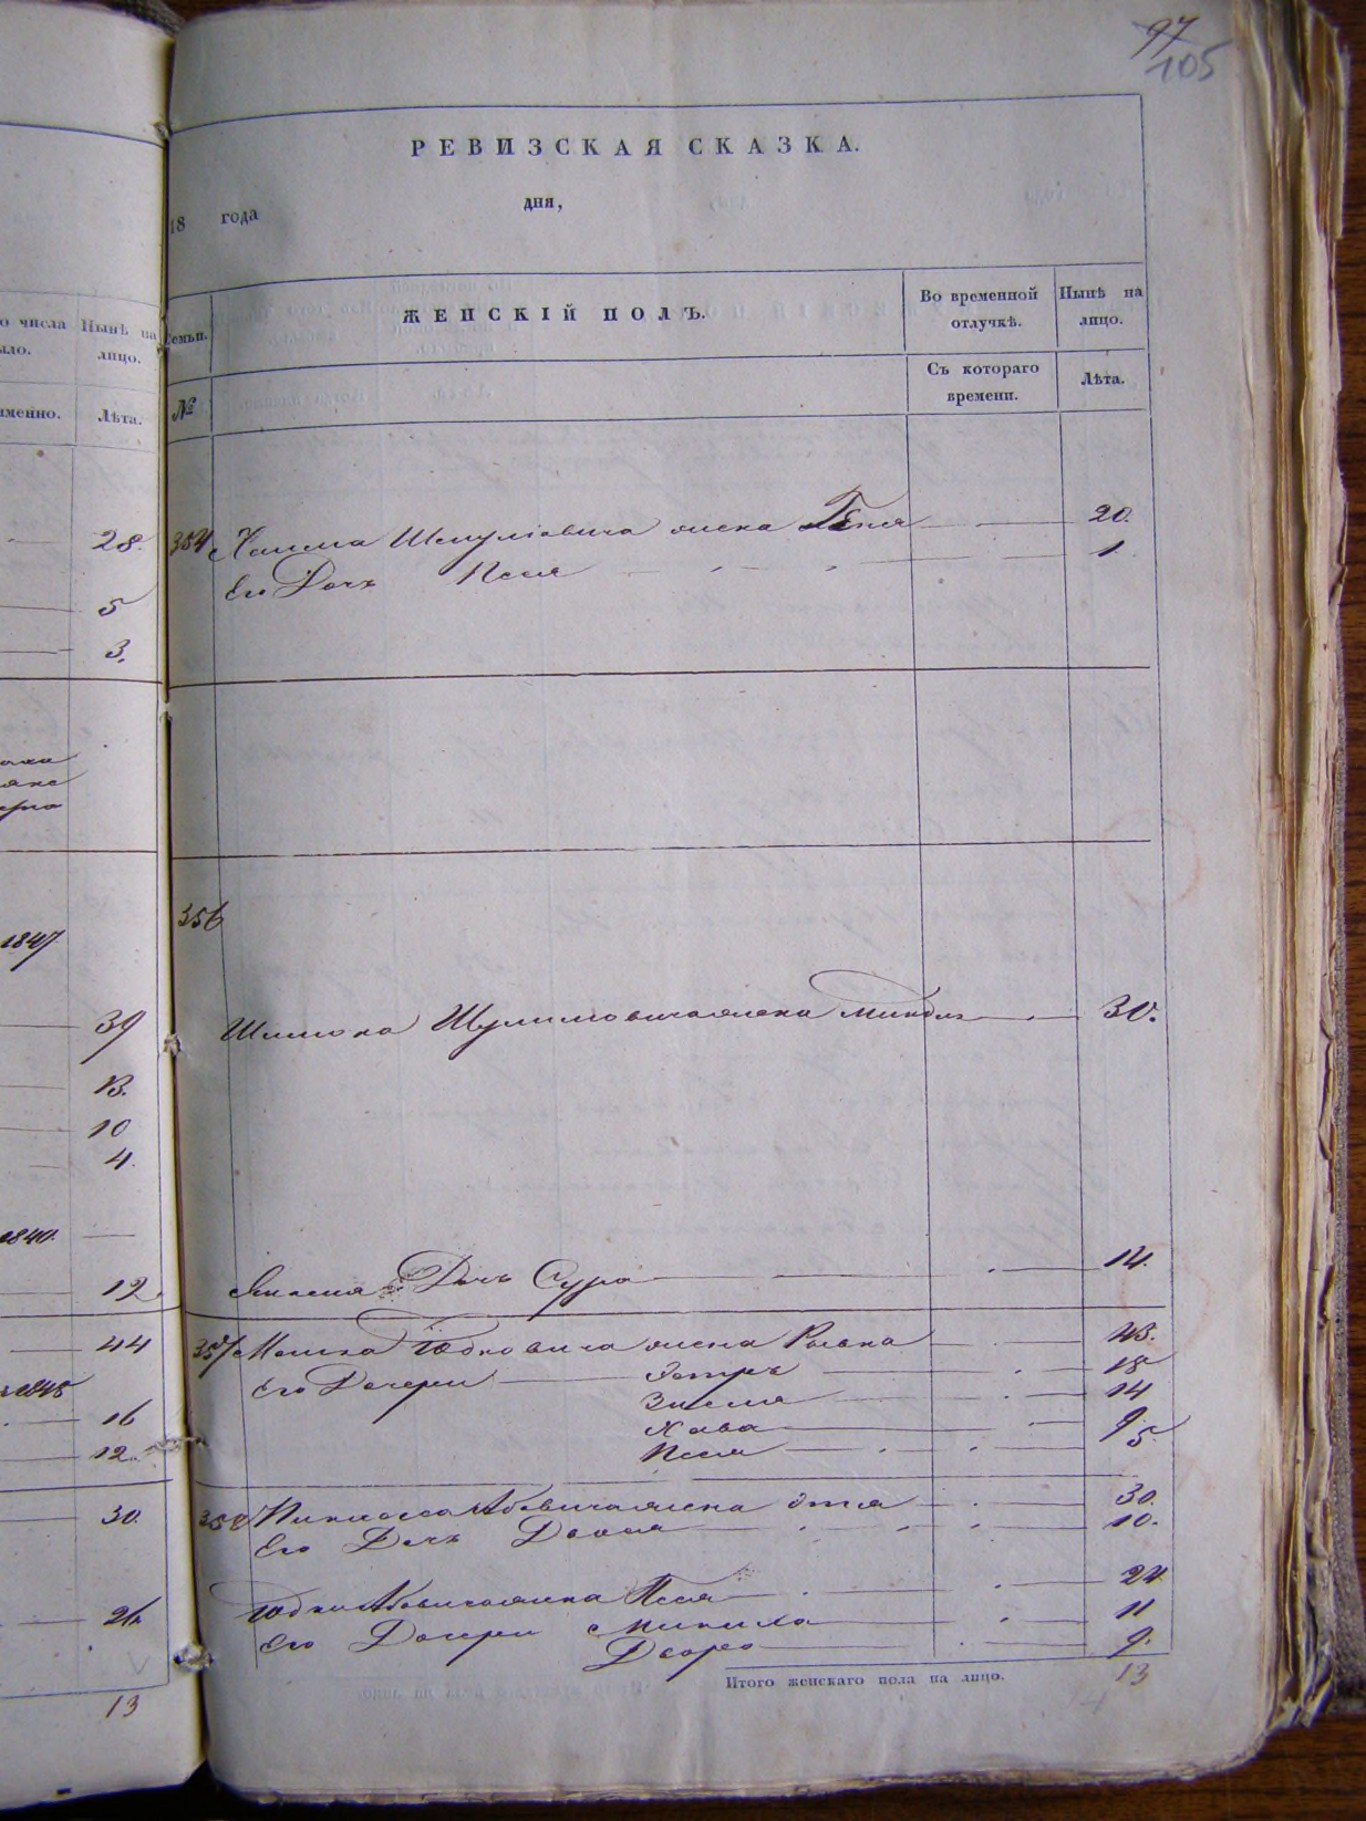 97
105
РЕВИЗСКАЯ СКАЗКА.
18 года дня,
о числа Нынѣ на
ыло. лицо.
именно. Лѣта.
28.
5
3.
1847
39
13.
10
4.
1840.
12.
44
1848
16
12.
30.
26.
13
Семьи. ЖЕНСКІЙ ПОЛЪ. Во временной Нынѣ на
отлучкѣ. лицо.
№ Съ котораго Лѣта.
времени.
354 Хаима Шмуліовича жена Геня 20.
Его Дочь Песя 1.
356
Шимона Шулимовича жена Миндля 30.
Дочь Сура 14.
357 Мошка Юдковича жена Рывка 43.
Его Дочери Эстръ 18
Зисля 14
Хава 9.
Песя 5.
358 Пинхаса Абовича жена Этля 30.
Его Дочь Двося 10.
Юдки Абовича жена Песя 24
Его Дочери Миниха 11
Двора 9.
Итого женскаго пола на лицо. 13